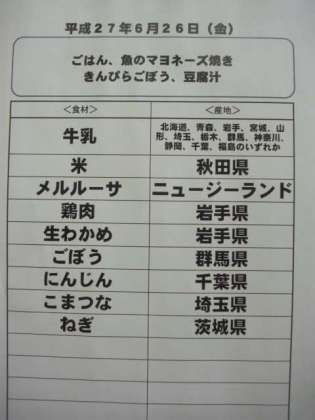 平成27年6月26日（金）
ごはん、魚のマヨネーズ焼き
きんぴらごぼう、豆腐汁
＜食材＞ ＜産地＞
牛乳 北海道、青森、岩手、宮城、山
形、埼玉、栃木、群馬、神奈川、
静岡、千葉、福島のいずれか
米 秋田県
メルルーサ ニュージーランド
鶏肉 岩手県
生わかめ 岩手県
ごぼう 群馬県
にんじん 千葉県
こまつな 埼玉県
ねぎ 茨城県